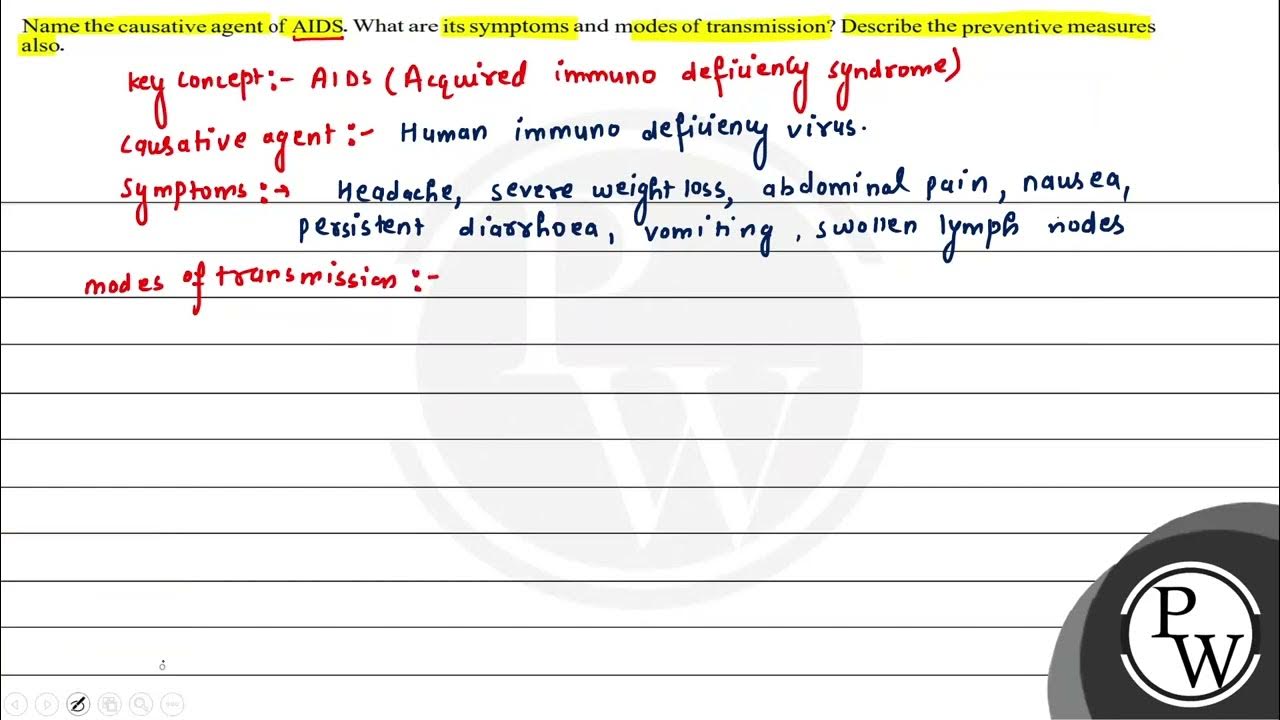 Name the causative agent of AIDS. What are its symptoms and modes of transmission? Describe the preventive measures
also.
Key concept:- AIDS (Acquired immuno deficiency syndrome)
Causative agent:- Human immuno deficiency virus.
Symptoms:→ Headache, severe weight loss, abdominal pain, nausea,
persistent diarrhoea, vomiting, swollen lymph nodes
modes of transmission:-
PW
PW